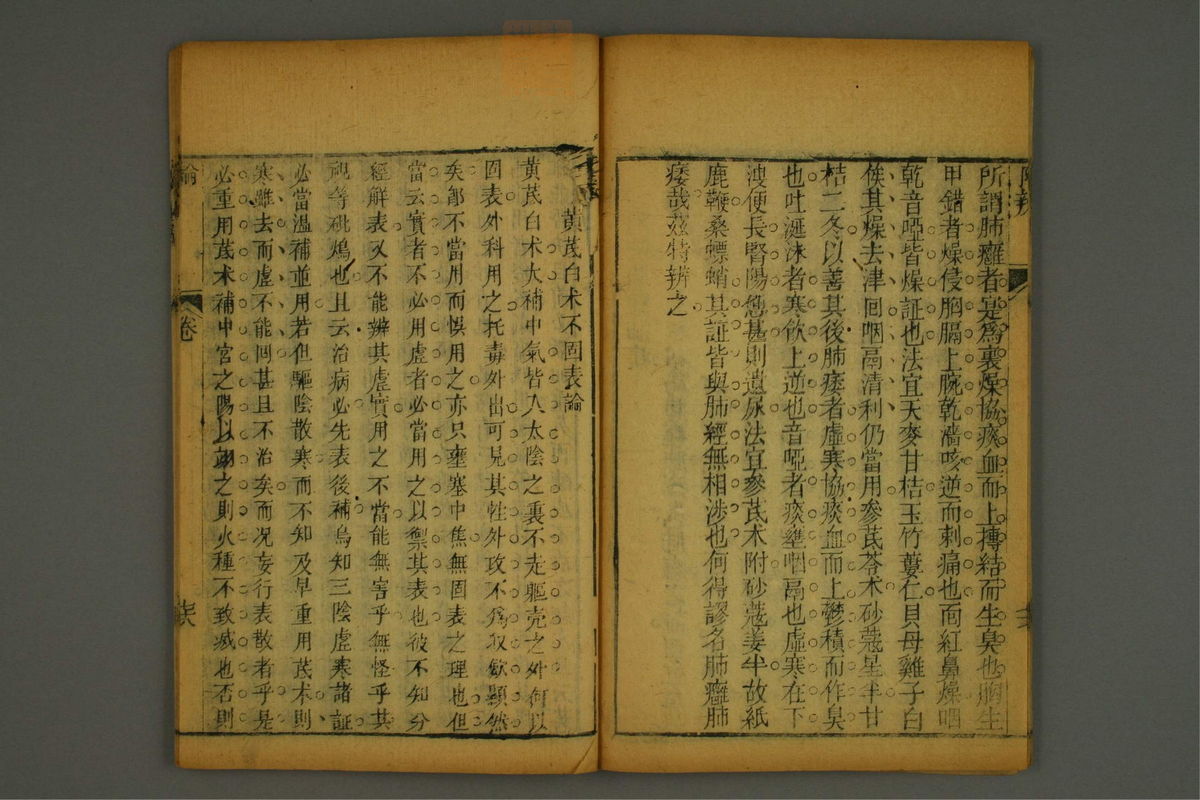 所謂肺癰者寔為裏燥協痰血而上搏結而生臭也胸生
甲錯者燥侵胸膈上腕乾濇咳逆而刺痛也面紅鼻燥咽
乾音啞皆燥証也法宜天麥甘桔玉竹蔞仁貝母雞子白
俟其燥去津回咽鬲清利仍當用參芪苓朮砂蔻星半甘
桔二冬以善其後肺痿者虛寒協痰血而上鬱積而作臭
也吐涎沫者寒飲上逆也音啞者痰壅咽鬲也虛寒在下
溲便長腎陽憊甚則遺尿法宜參芪朮附砂蔻姜半故紙
鹿鞭桑螵蛸其証皆與肺經無相涉也何得謬名肺癰肺
痿哉茲特辨之
黃芪白朮不固表論
黃芪白朮大補中氣皆入太陰之裏不走軀壳之外何以
固表外科用之托毒外出可見其性外攻不為收歛顯然
矣即不當用而悞用之亦只壅塞中焦無固表之理也但
當云實者不必用虛者必當用之以禦其表也彼不知分
經解表又不能辨其虛實用之不當能無害乎無怪乎其
視等砒鴆也且云治病必先表後補烏知三陰虛寒諸証
必當溫補並用若但驅陰散寒而不知及早重用芪朮則
寒雖去而虛不能回甚且不治矣而况妄行表散者乎是
必重用芪朮補中宮之陽以翊之則火種不致滅也否則
論
卷